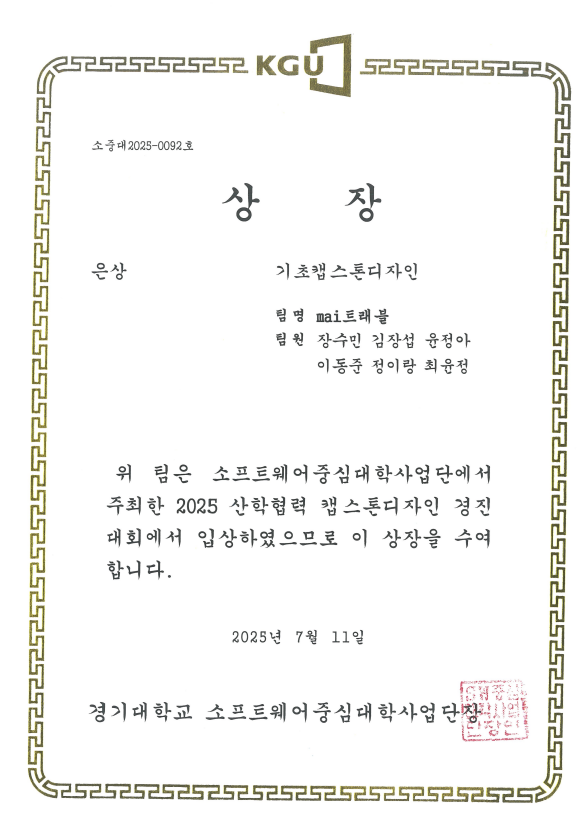 KGU
소중대2025-0092호
상 장
은상 기초캡스톤디자인
팀명 mai트래블
팀원 장수민 김장섭 윤정아
이동준 정이랑 최윤정
위 팀은 소프트웨어중심대학사업단에서
주최한 2025 산학협력 캡스톤디자인 경진
대회에서 입상하였으므로 이 상장을 수여
합니다.
2025년 7월 11일
경기대학교 소프트웨어중심대학사업단장